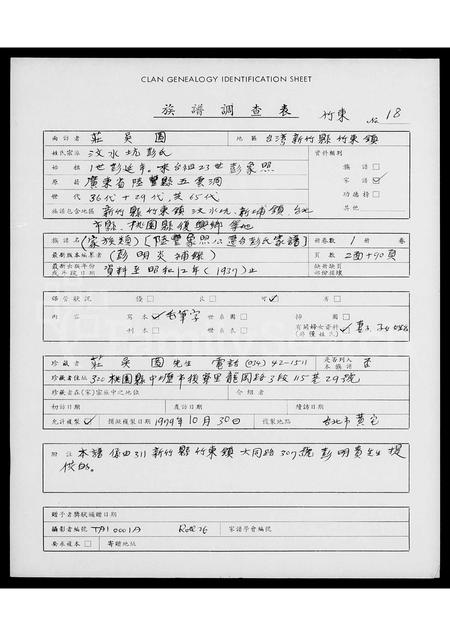 CLAN GENEALOGY IDENTIFICATION SHEET
族譜調查表 竹東 No 18
面訪者 莊吳園 地區 台灣新竹縣竹東鎮
姓氏宗派 汶水坑彭氏 資料類別
始祖 1世彭延年。來台祖23世彭象照 族譜□
原籍 廣東省陸豐縣五雲洞 家譜☑
世代 36代+29代,共65代 功德榜□
族譜包含地區 新竹縣竹東鎮汶水坑、新埔鎮、台北 其他
市縣、桃園縣復興鄉等地
族譜名 (家族類)[陸豐象照公遷台彭氏家譜] 冊卷數 1 冊 卷
最新版本編纂者 (彭明炎補録) 頁數 2面+90頁
最新出版年份或手段日期 資料至昭和12年(1937)止 缺冊缺頁部份採擇
保管狀況 優□ 良□ 可☑ 劣□
內容 寫本✓毛筆字 世系圖□ 掃圖□
刊本□ 世系表□ 有關婦女資料(非僅姓氏)✓ 妻、子女姓名
珍藏者 莊吳園先生 電話(034)42-1511 是否列入本族譜 否
珍藏者住址 320桃園縣中壢市後寮里龍岡路3段115巷29號
珍藏者在(宗)宗派中之地位 介紹者
初訪日期 農訪日期 續訪日期
允許複製✓ 擬攝複製日期 1979年10月30日 複製地點 台北市黃宅
附註 本譜係由311新竹縣竹東鎮大同路307號彭明貴先生提
供的。
贈予者獎狀補贈日期
攝影者編號 TA10001A Roll 26 家譜學會編號
要求複本□ 寄贈地址